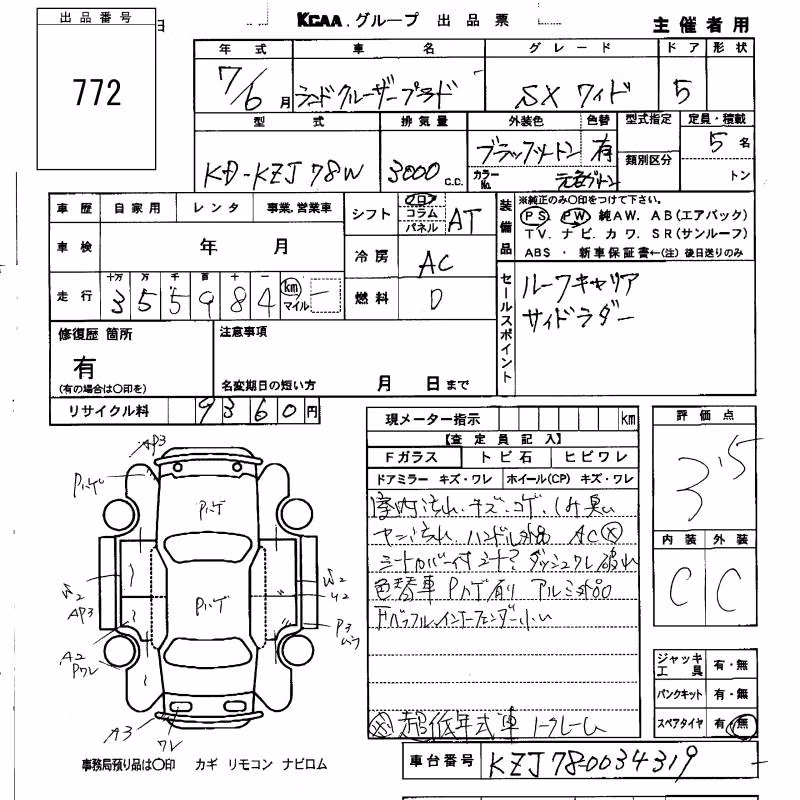 出品番号
KCAA.グループ 出品票
主催者用
772
年式 車名 グレード ドア 形状
7/6月 ランドクルーザープラド SX ワイド 5
型式 排気量 外装色 色替 型式指定 定員・積載
類別区分
KD-KZJ78W 3000 c.c. ブラックツートン 有 5名
カラーNo. 元色グリーン トン
車歴 自家用 レンタ 事業.営業車
シフト フロア コラム パネル AT
装備品 ※純正のみ〇印をつけて下さい。
PS PW 純AW. AB(エアバック)
TV. ナビ. カワ. SR(サンルーフ)
ABS ・ 新車保証書←(注) 後日送りのみ
車検 年 月
冷房 AC
走行 十万 万 千 百 十 一
355984 km マイル
燃料 D
セールスポイント
ルーフキャリア
サイドラダー
修復歴 箇所
有
(有の場合は〇印を)
注意事項
名変期日の短い方 月 日まで
リサイクル料 9360円
現メーター指示 km
【査定員記入】
Fガラス トビ石 ヒビワレ
ドアミラー キズ・ワレ ホイール(CP) キズ・ワレ
室内汚れ.キズ.コゲ.しみ.臭い
ヤニ汚れ ハンドル
AC
ダッシュワレ 破れ
色替車 Pハゲ有り アルミ
インナーフェンダー
超低年式車 ノークレーム
評価点
3.5
内装 外装
C C
AP3
Pハゲ
Pハゲ
AP3
A2
Pワレ
P3
ムラ
A3
ワレ
ジャッキ工具 有・無
パンクキット 有・無
スペアタイヤ 有・無
車台番号 KZJ78-0034319
事務局預り品は〇印 カギ リモコン ナビロム